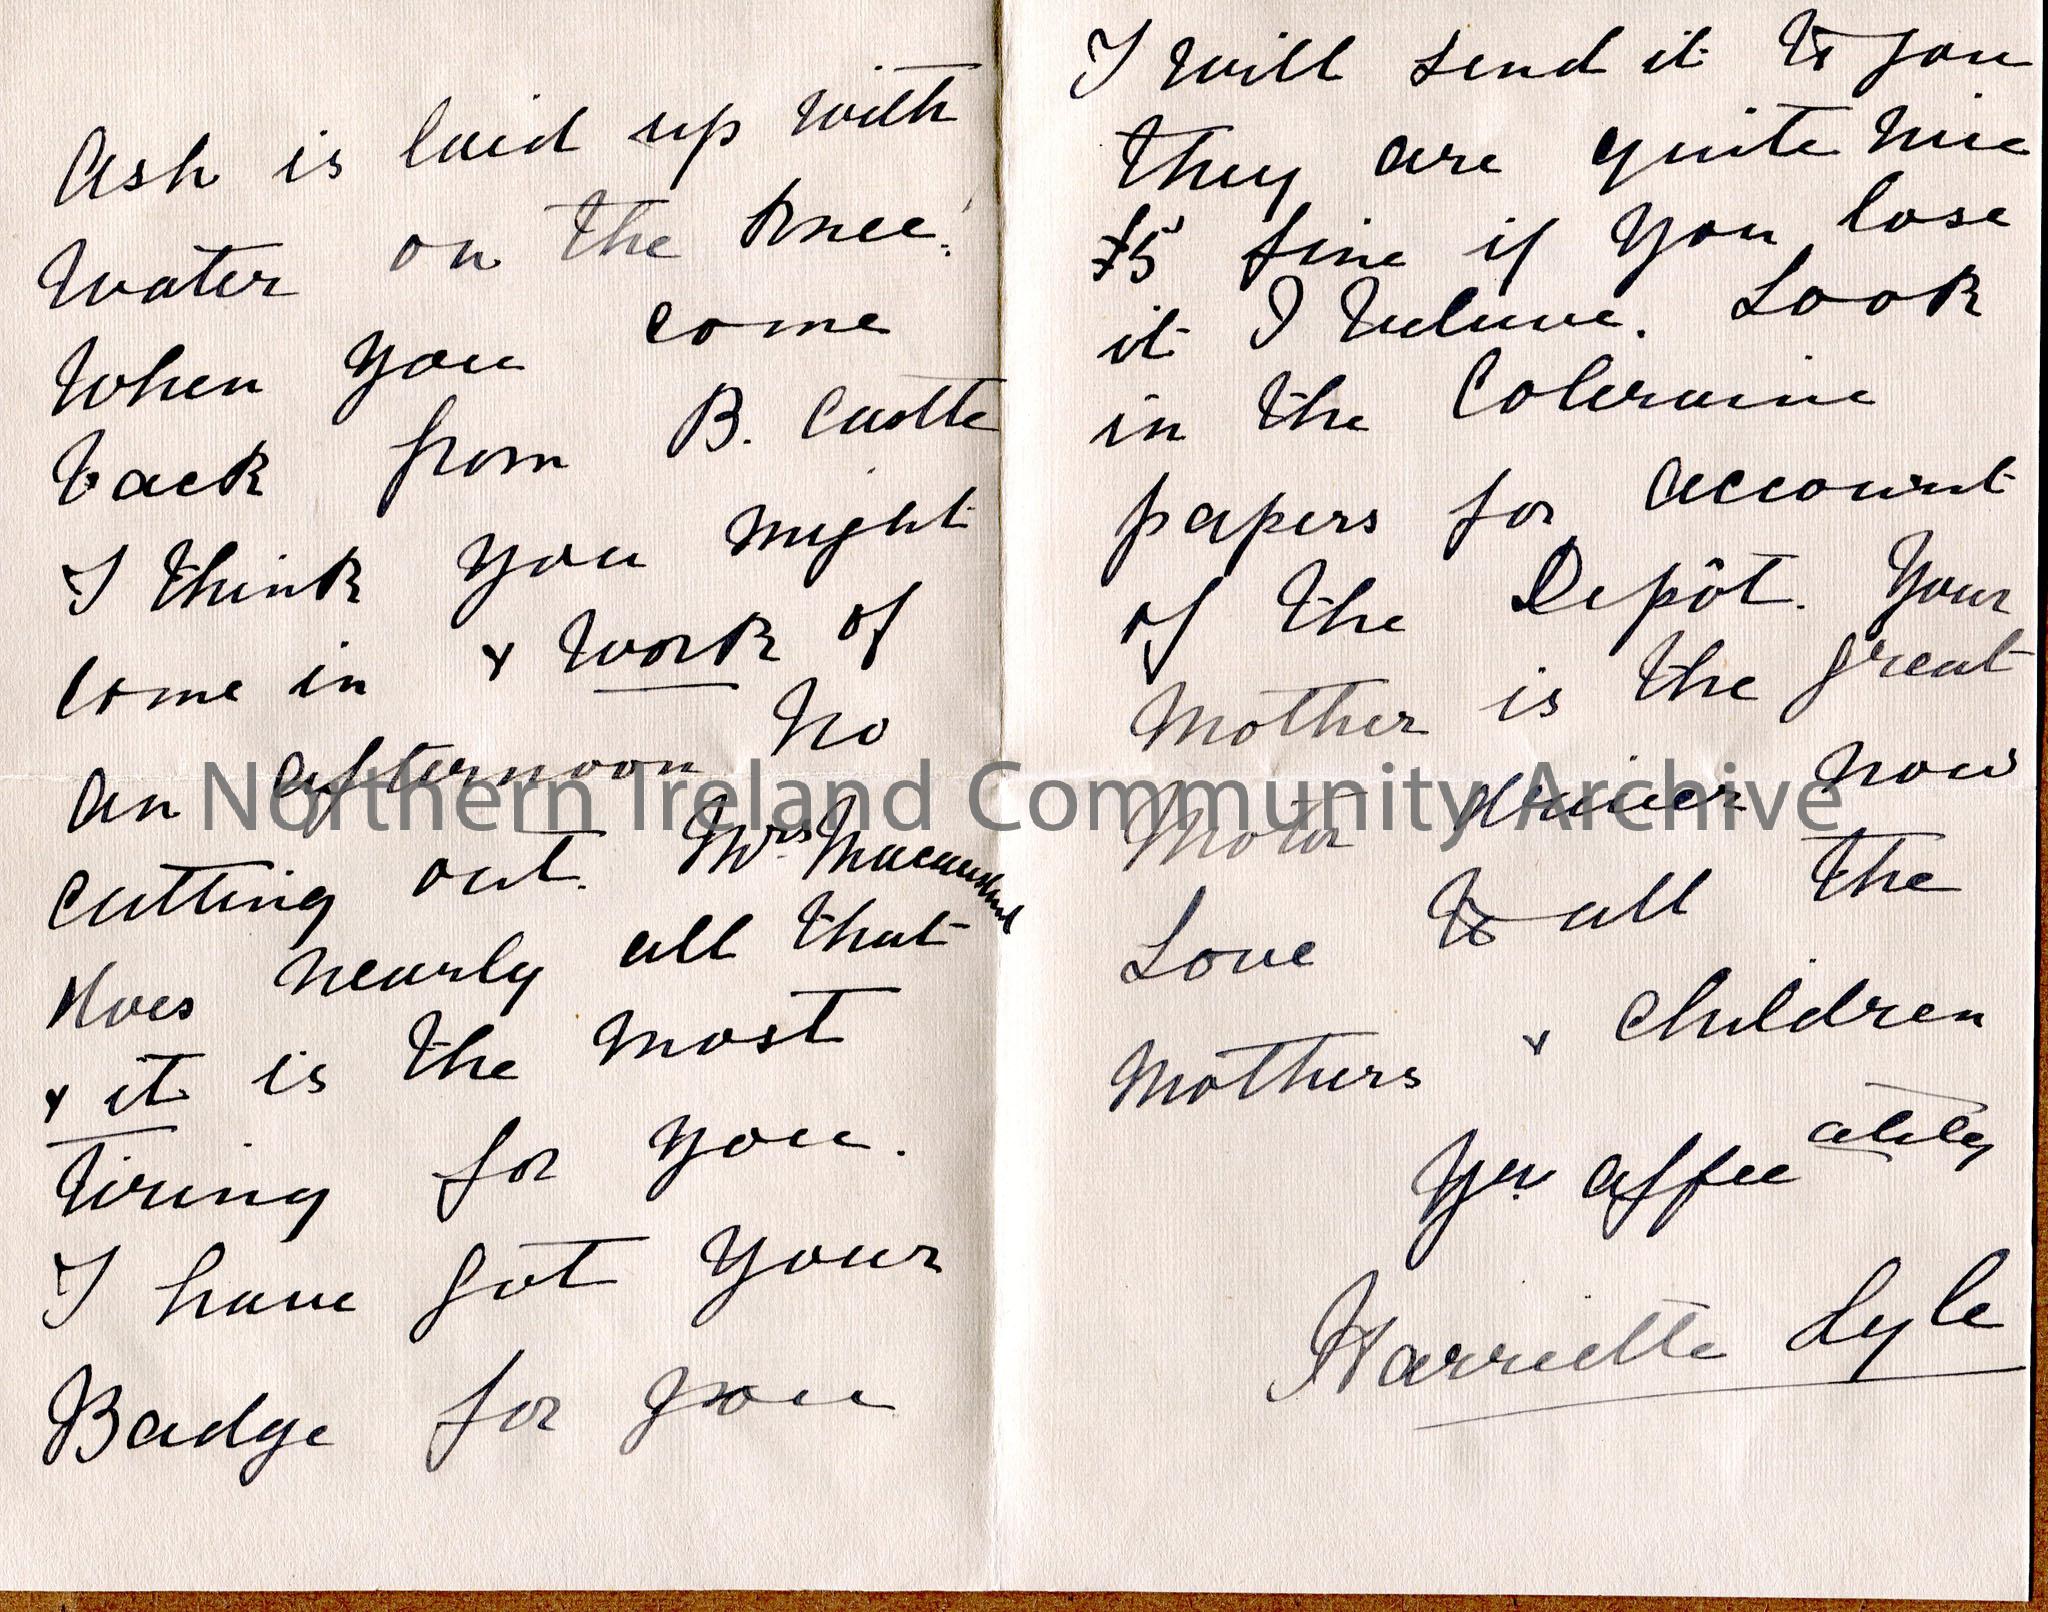 Ash is laid up with
Water on the Knee!
When you come
back from B. Castle
I think you might
come in & work of
an afternoon No
cutting out. Mrs Macausland
does nearly all that
& it is the most
tiring for you.
I have got your
Badge for you
I will send it to you
they are quite nice
£5 fine if you lose
it I believe. Look
in the Coleraine
papers for account
of the Depôt. Your
Mother is the great
Motor driver now
Love to all the
Mothers & children
Yrs. affectately
Harriette Lyle
Northern Ireland Community Archive